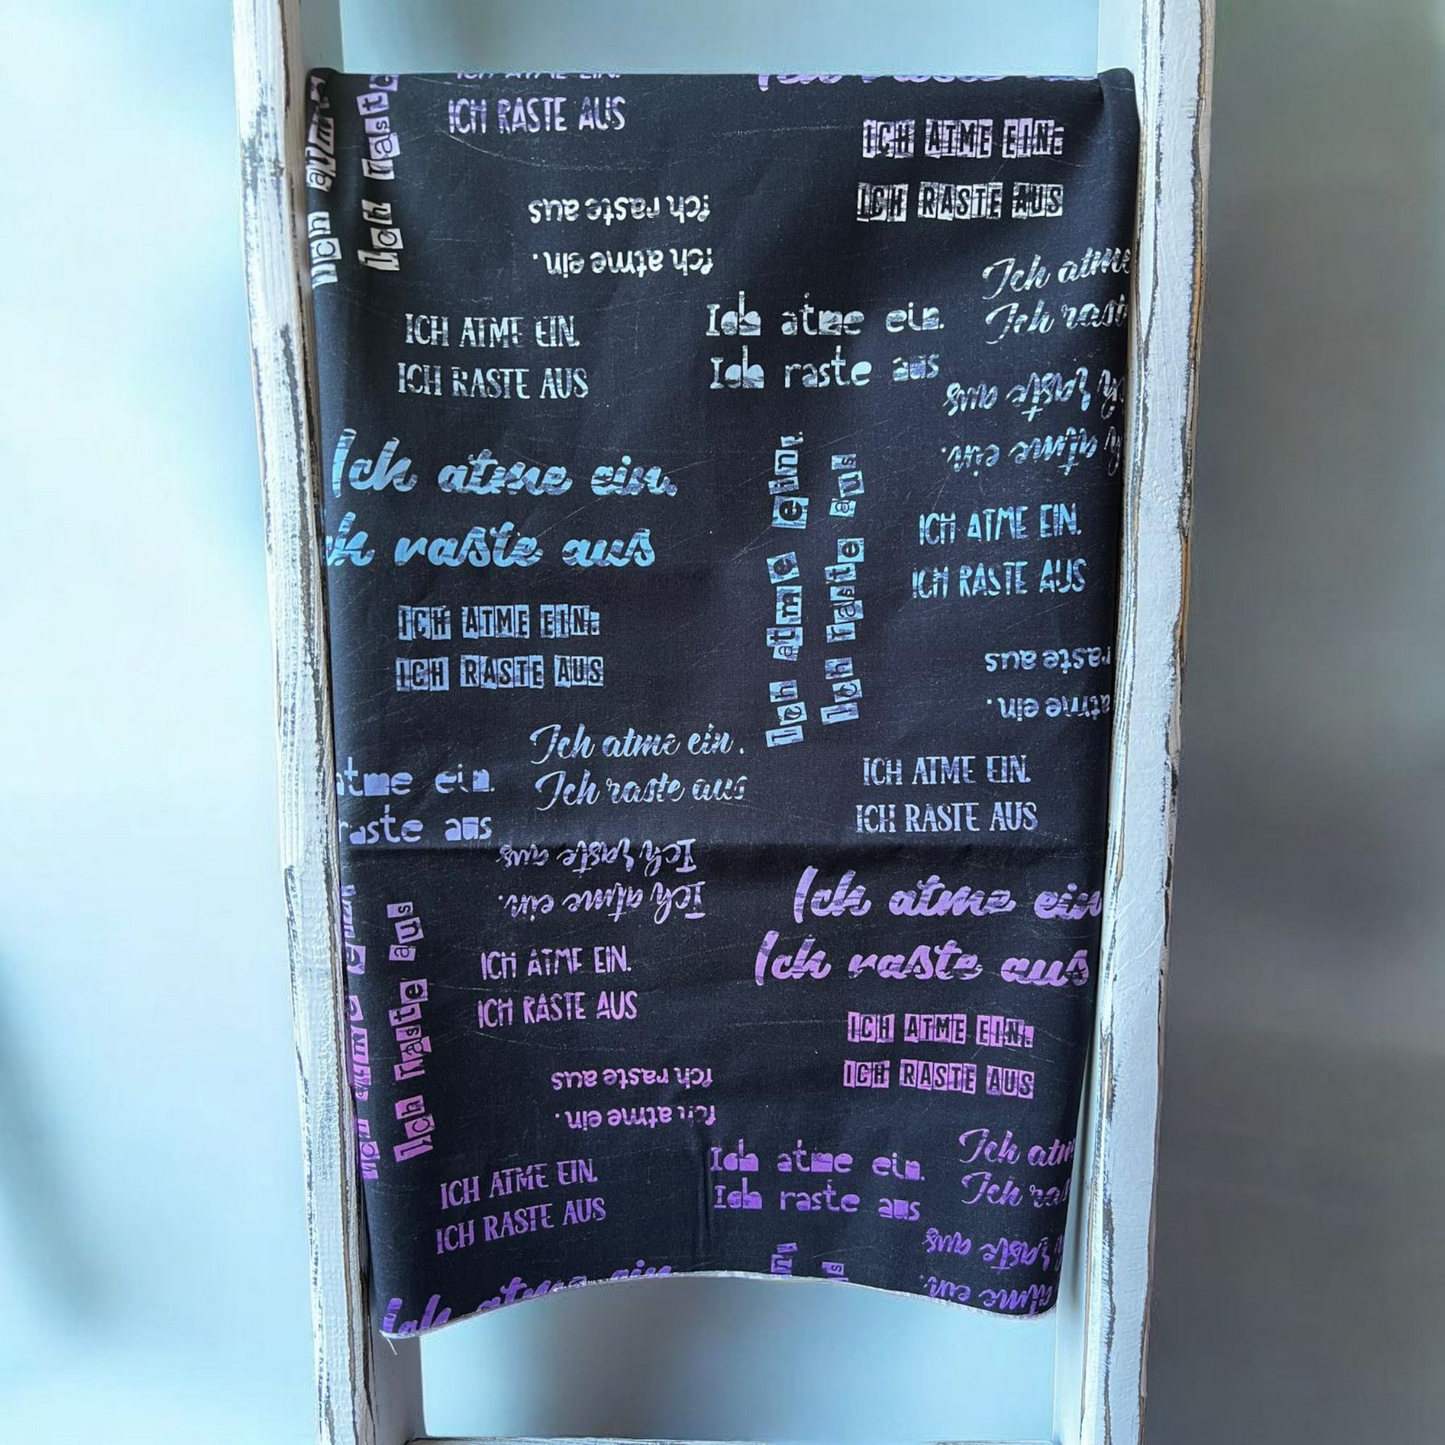 ICH RASTE AUS
ICH ATME EIN.
ICH RASTE AUS
Ich raste
Ich atme ein.
Ich raste aus
Ich atme
Ich raste
Ich atme ein.
Ich raste aus
ICH ATME EIN.
ICH RASTE AUS
raste aus
atme ein.
Ich atme ein.
raste aus
Ich atme ein.
Ich raste aus
ICH ATME EIN.
ICH RASTE AUS
ICH ATME EIN.
ICH RASTE AUS
atme ein.
raste aus
Ich atme ein.
Ich raste aus
ICH ATME EIN.
ICH RASTE AUS
atme ein.
raste aus
Ich atme ein.
Ich raste aus
Ich atme ein
Ich raste aus
Ich raste aus
ICH ATME EIN.
ICH RASTE AUS
ICH ATME EIN.
ICH RASTE AUS
Ich atme ein.
Ich raste aus
Ich atme ein.
Ich raste aus
Ich
Ich
ICH ATME EIN.
ICH RASTE AUS
raste aus
atme ein.
Ich atme ein